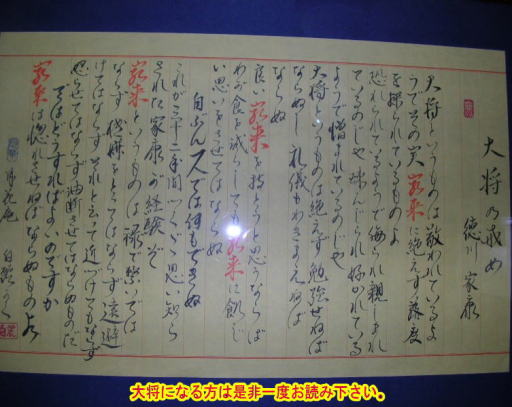 大将の戒め
徳川 家康
大将というものは敬われているよ
うでその実家来に絶えず落度
を探られているものよ
恐れられているようで侮られ親しまれ
ているようで疎んじられ好かれている
ようで憎まれているのじゃ
大将というものは絶えず勉強せねば
ならぬし礼儀もわきまえねば
ならぬ
良い家来を持とうと思うならば
わが食を減らしても家来に飢じ
い思いをさせてはならぬ
自ぶん一人では何もできぬ
これが三十二年間つくづく思い知ら
された家康が経験ぞ
家来というものは禄で繋いでは
ならず機嫌をとってはならず遠避
けてはならず近づけてもならず
怒らせてはならず油断させてはならぬものだ
ではどうすればよいのですか
家来は惚れさせねばならぬものよ
大将になる方は是非一度お読み下さい。